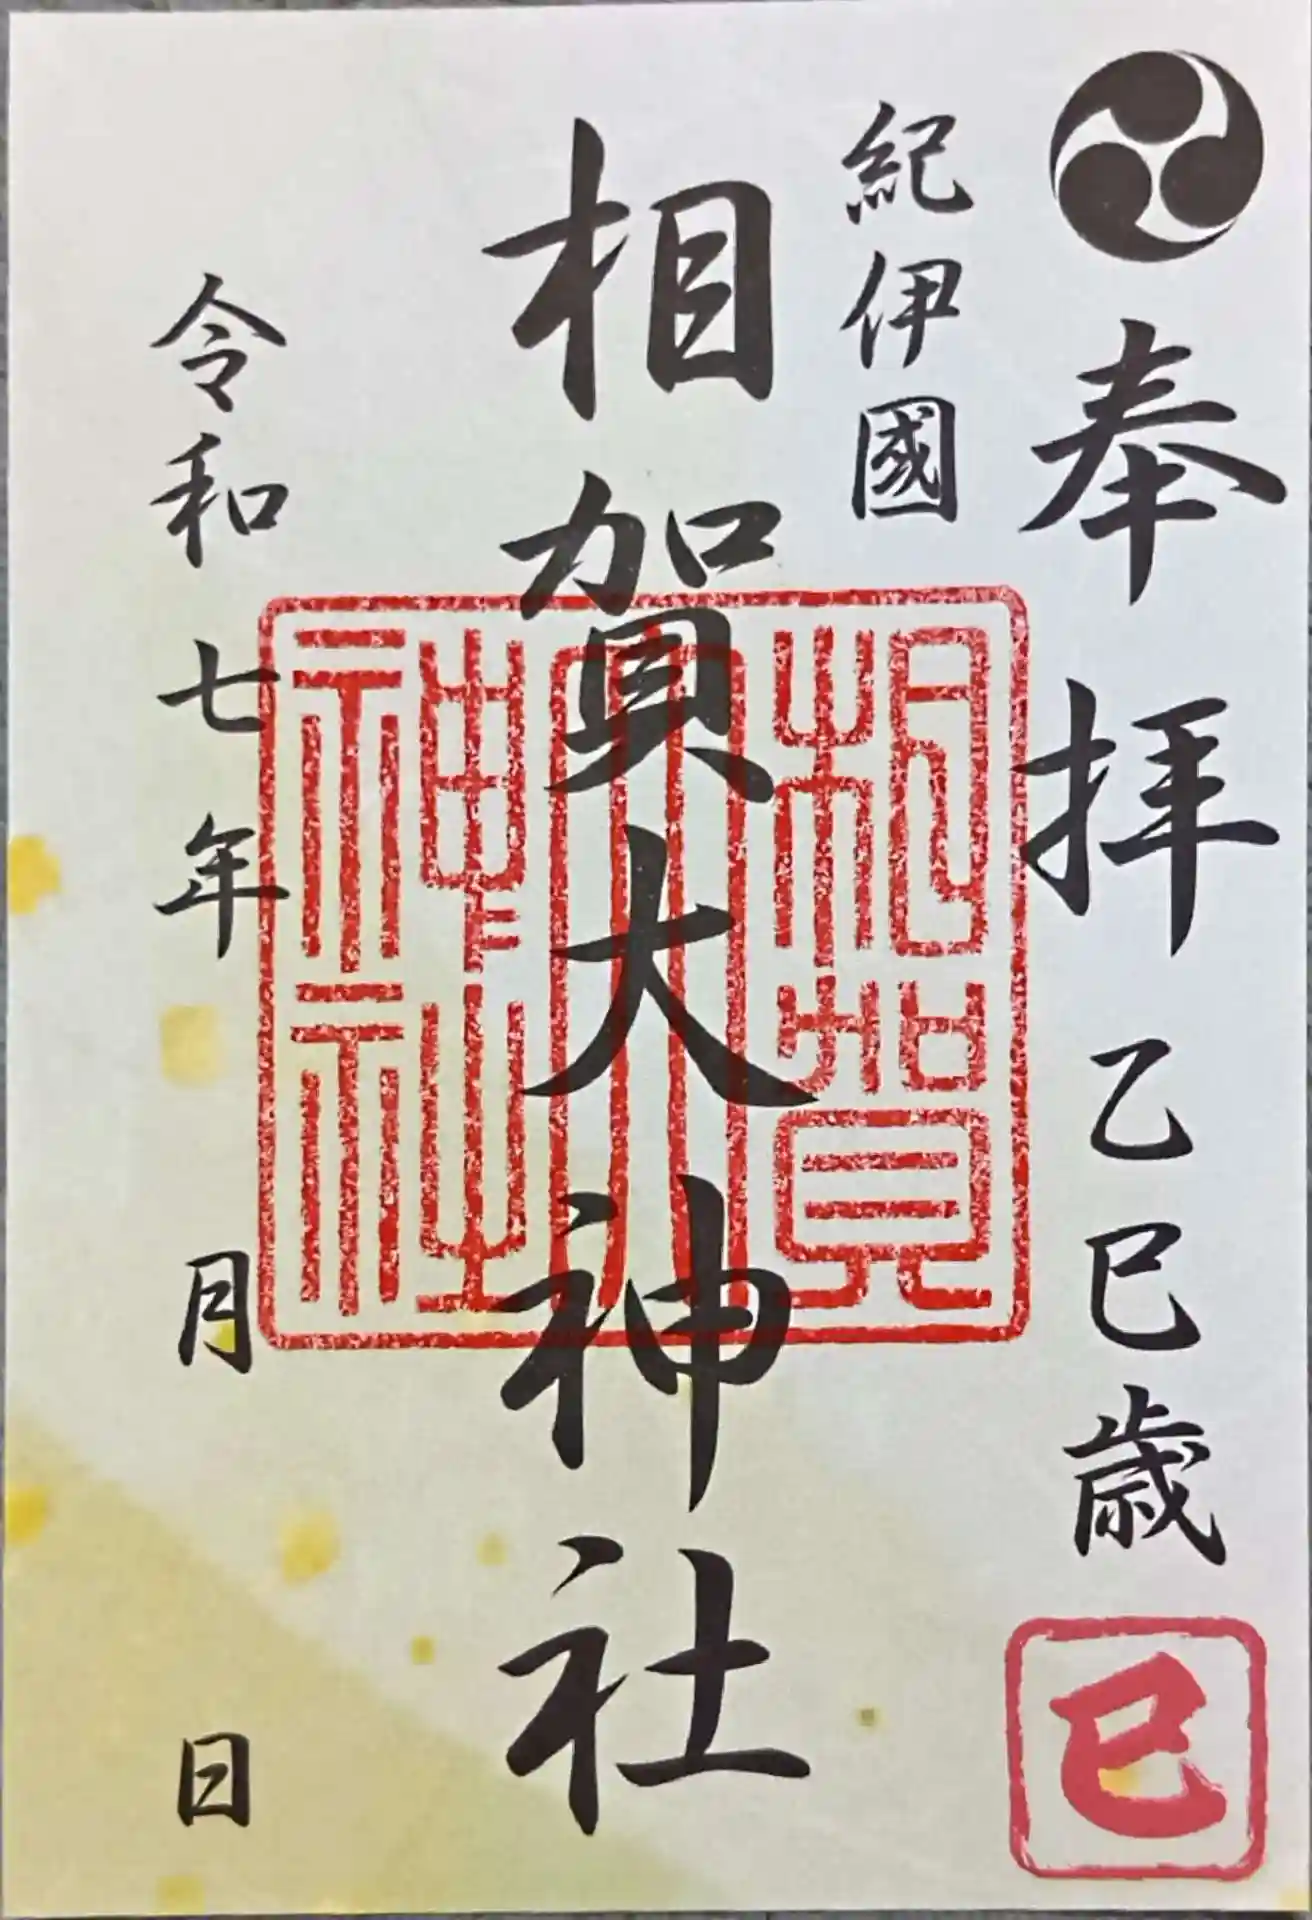 奉拝 乙巳歳
巳
紀伊國
相賀大神社
相賀
大
神社
令和七年 月 日